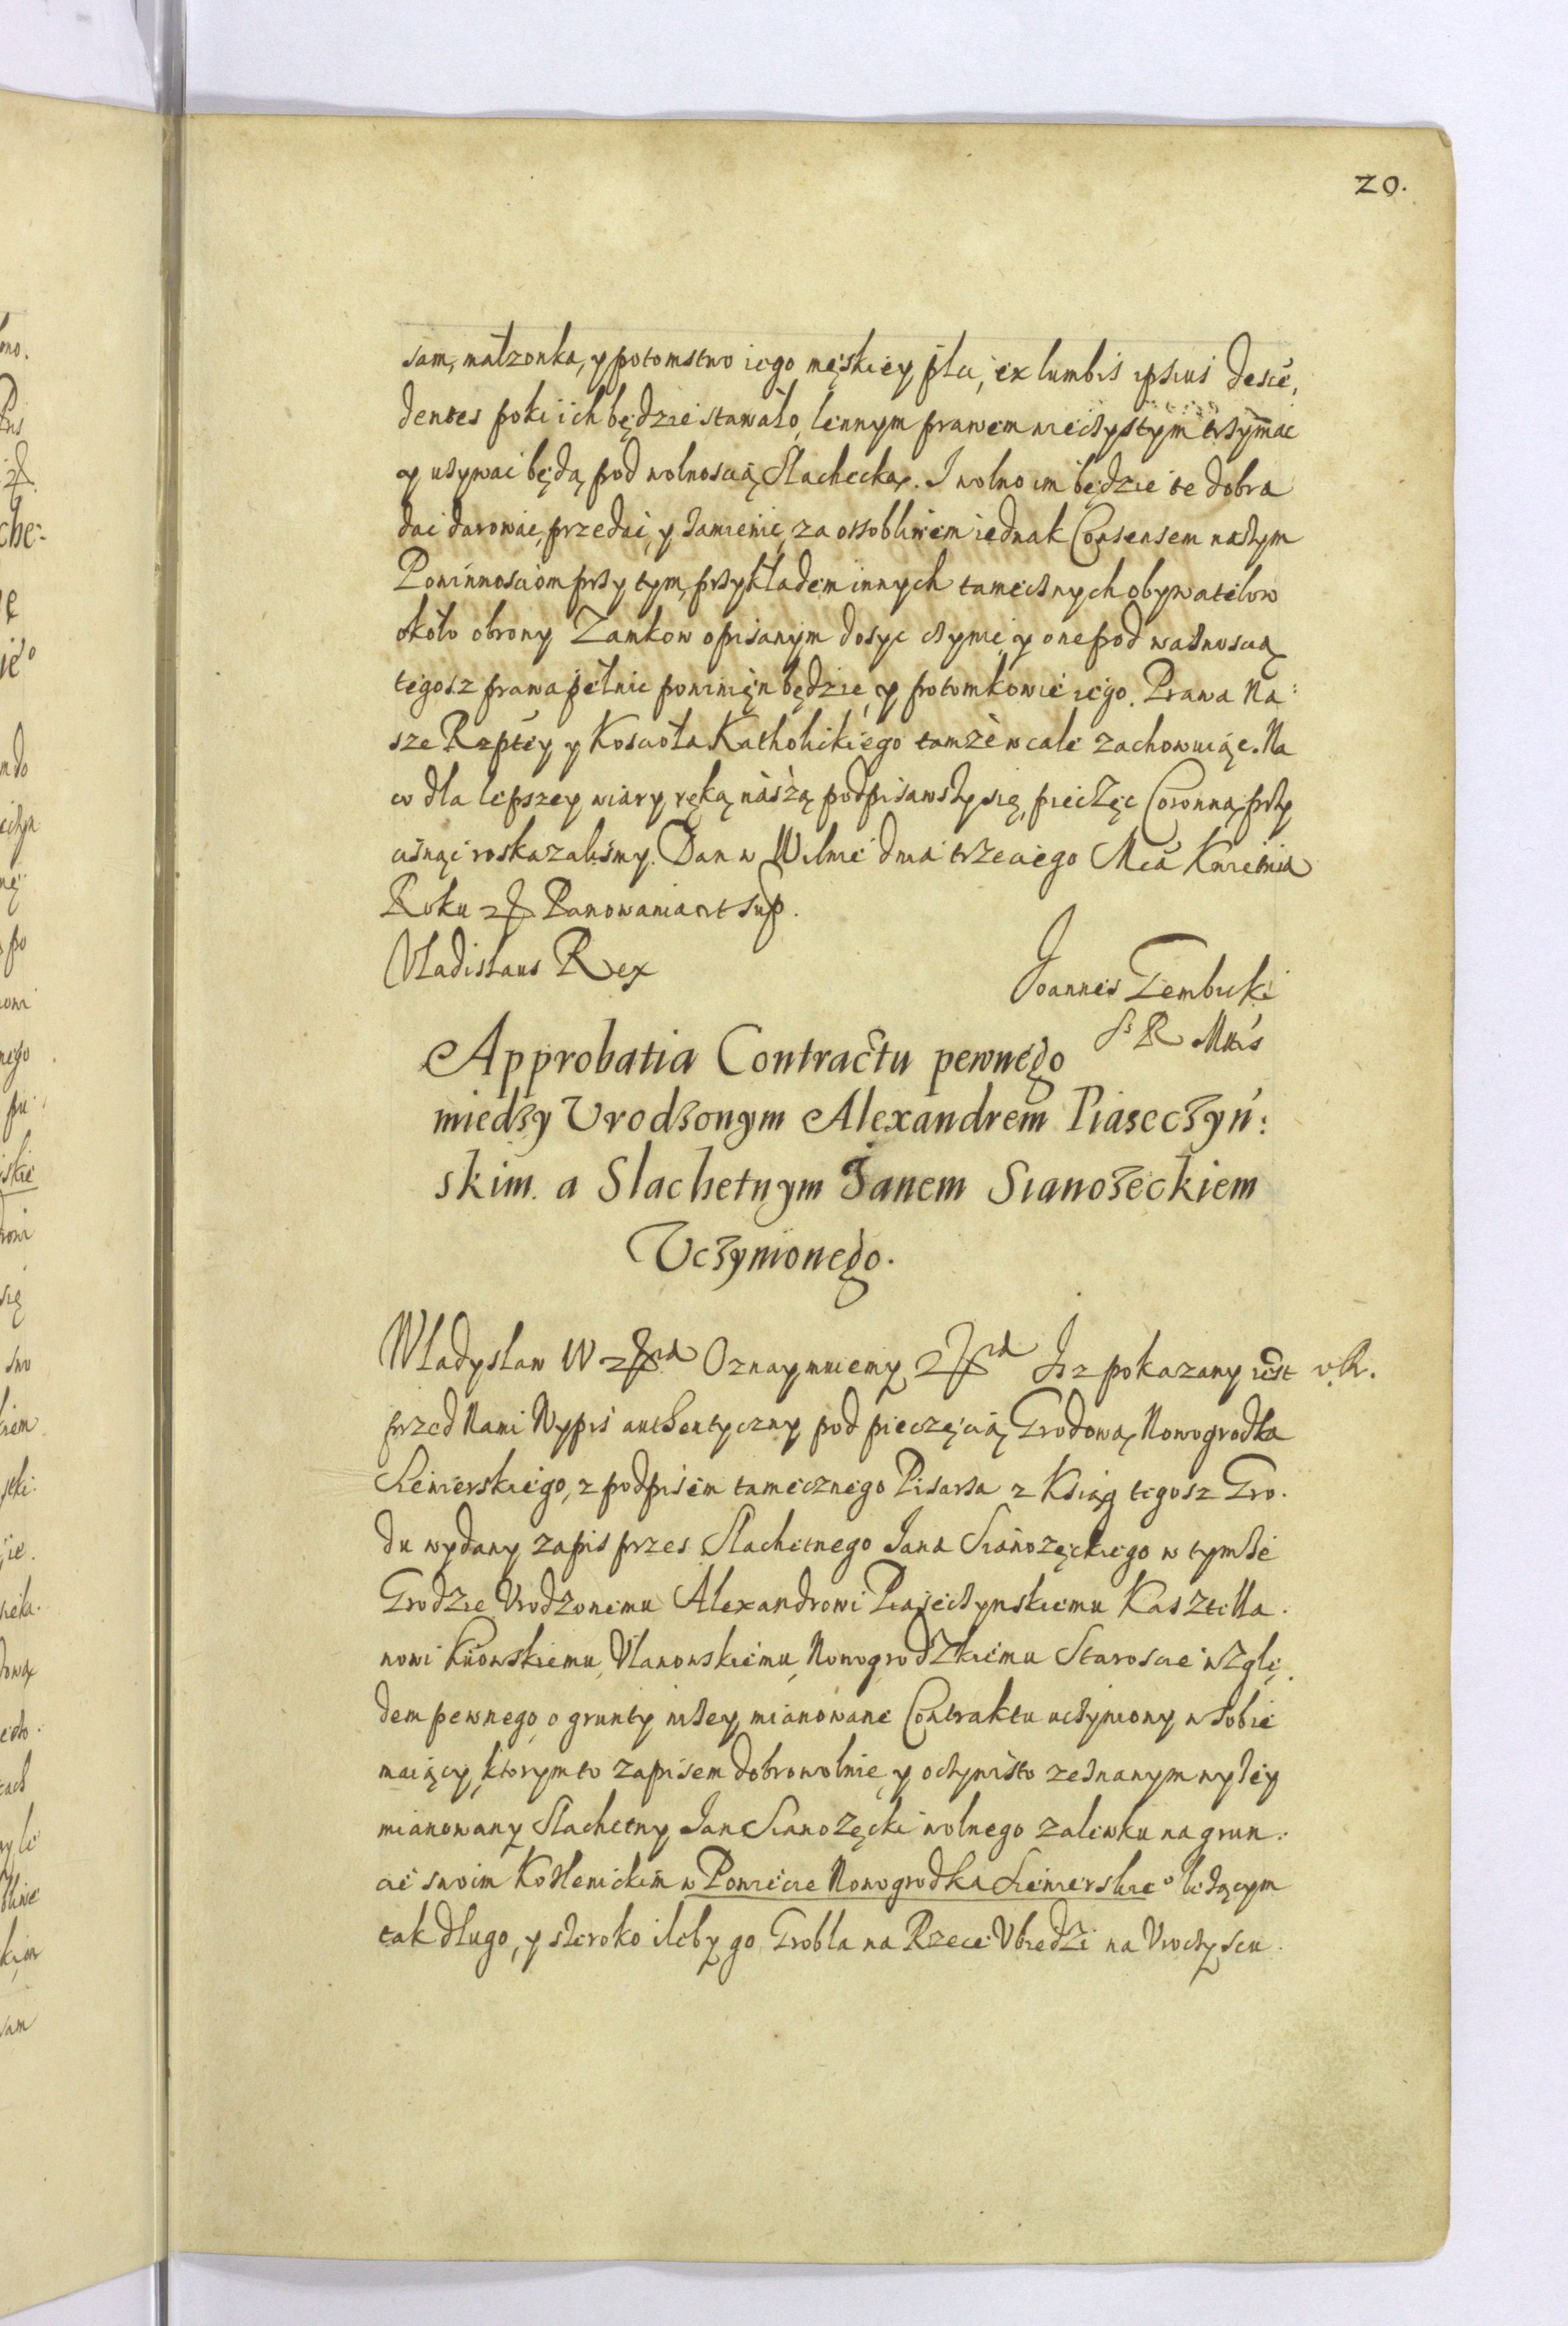 20.
sam, małzonka, y potomstwo iego męskiey płci, ex lumbis ipsius desce,
dentes poki ich będzie stawało, lennym prawem wieczystym trzymac
y uzywac będą pod wolnoscią Slachecką. I wolno im będzie te dobra
dac darowac, przedac, y zamienic, za ossobliwem iednak Consensem naszym
Powinnosciom przy tym, przykładem innych tamecznych obywatelow
około obrony Zamkow opisanym dosyc czynic, y one pod waznoscią
tegosz prawa pełnic powinien będzie, y potomkowie iego. Prawa Na:
sze Rzptey y Koscioła Katholickiego tamze w cale zachowuiąc. Na
co dla lepszey wiary ręką naszą podpisawszy się, pieczęc Coronną przy
cisnąc roskazalismy. Dan w Wilnie dnia trzeciego Mca Kwietnia
Roku Panowania ut sup.
Vladislaus Rex
Joannes Gembicki
S R Mtis
Approbatia Contractu pewnego
miedzy Vrodzonym Alexandrem Piaseczyń:
skim. a Slachetnym Janem Sianozeckiem
Vczynionego.
Władysław IV Oznaymuiemy Iz pokazany iest v.R.
przed Nami Wypis authentyczny pod pieczęcią Grodową Nowogrodka
Siewierskiego, z podpisem tamecznego Pisarza z Ksiąg tegosz Gro.
du wydany zapis przes Slachetnego Jana Sianozęckiego w tymze
Grodzie Vrodzonemu Alexandrowi Piaseczynskiemu Kasztella.
nowi Kiiowskiemu, Vlanowskiemu, Nowogrodzkiemu Staroscie wzglę.
dem pewnego o grunty nizey mianowane Contraktu uczyniony w sobie
maiący, ktorym to zapisem dobrowolnie y oczywisto zeznanym wyzey
mianowany Slachetny Jan Sianozęcki wolnego zalewku na grun.
cie swoim Kozlenickim w Powiecie Nowogrodka Siewierskieo lezącym
tak długo, y szeroko ileby go Grobla na Rzece Vbiedzi na Vroczyscu